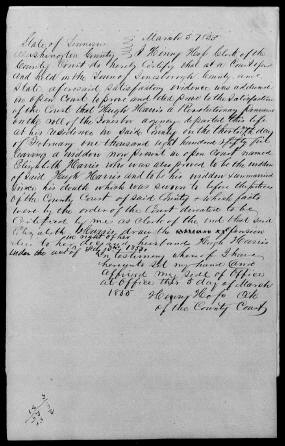 March 5th 1855
State of Tennessee
Washington County
I Henry Hoss Clerk of the
County Court do hereby Certify that at a Court open
and held in the Town of Jonesborough County and
State aforesaid satisfactory evidence was adduced
in open Court to prove and did prove to the satisfaction
of the Court that Hugh Harris a Revolutionary pensioner
on the roll of the agency departed this life
at his residence in said County on the thirtieth day
of February one thousand eight hundred & fifty five
leaving a widow now present in open Court named
Elizabeth Harris who was also proved to be the widow
of said Hugh Harris and to be his widow unmarried
since his death which was sworn to before the Justices
of the County Court of said County & which facts
were by the order of the Court directed to be
Certified by me as clerk of the end that said
Elizabeth Harris draw the pension
due to her in right of her husband Hugh Harris
under the act of Feby 3rd 1853
In testimony whereof I have
hereunto set my hand and
affixed my seal of Office
at Office this 5 day of March
1855
Henry Hoss Clk
of the County Court